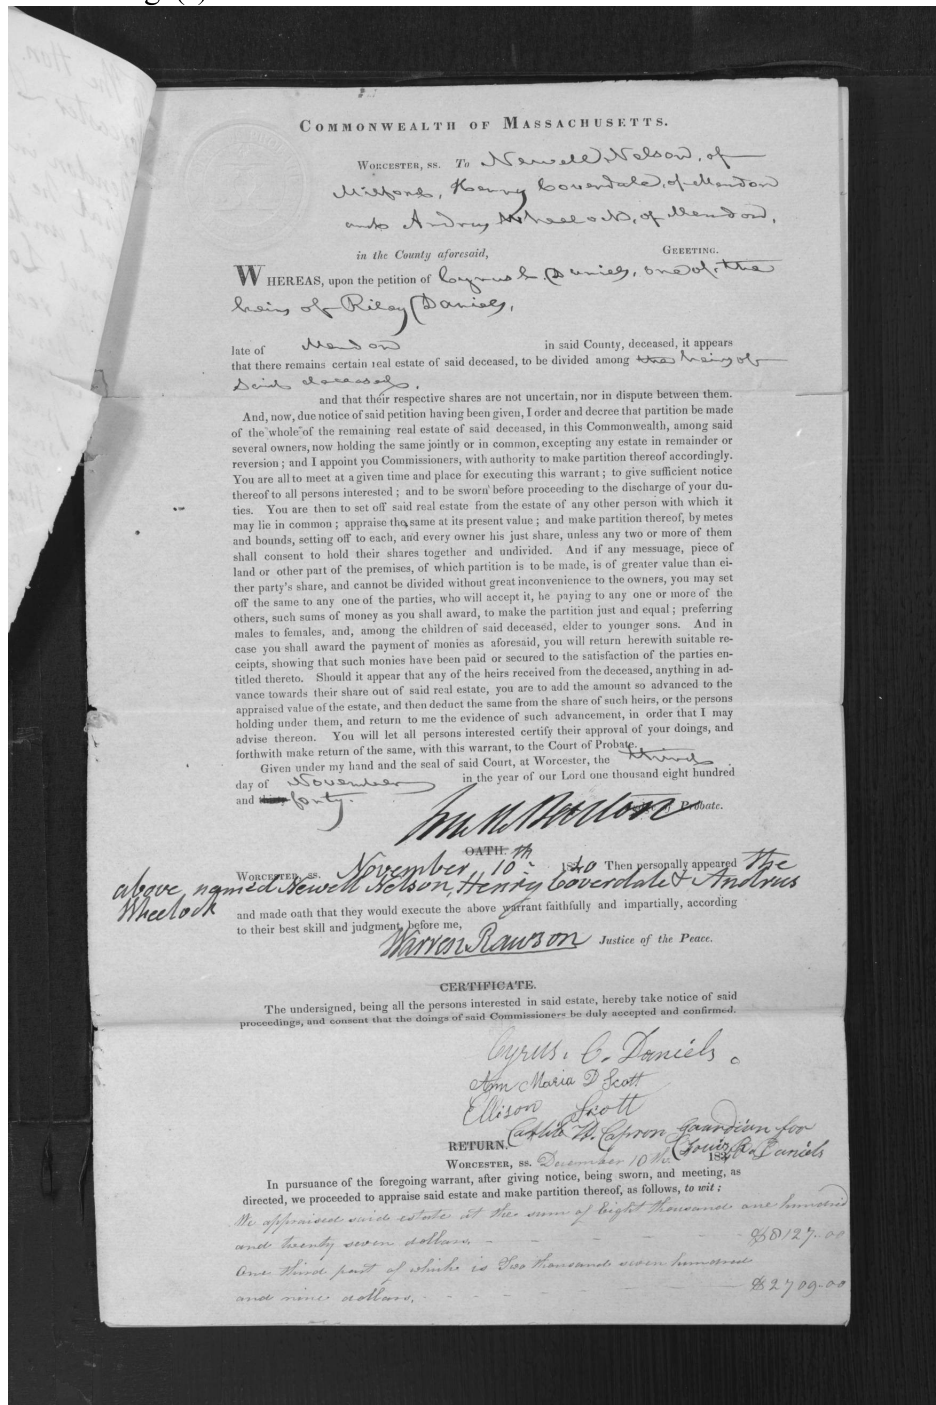 COMMONWEALTH OF MASSACHUSETTS.
WORCESTER, ss. To Newell Nelson, of
Milford, Henry Coverdale, of Mendon
and Andrus Wheelock, of Mendon,
in the County aforesaid, GREETING.
WHEREAS, upon the petition of Cyrus C. Daniels, one of the
heirs of Riley Daniels,
late of Mendon in said County, deceased, it appears
that there remains certain real estate of said deceased, to be divided among the heirs of
said deceased,
and that their respective shares are not uncertain, nor in dispute between them.
And, now, due notice of said petition having been given, I order and decree that partition be made
of the whole of the remaining real estate of said deceased, in this Commonwealth, among said
several owners, now holding the same jointly or in common, excepting any estate in remainder or
reversion; and I appoint you Commissioners, with authority to make partition thereof accordingly.
You are all to meet at a given time and place for executing this warrant; to give sufficient notice
thereof to all persons interested; and to be sworn before proceeding to the discharge of your du-
ties. You are then to set off said real estate from the estate of any other person with which it
may lie in common; appraise the same at its present value; and make partition thereof, by metes
and bounds, setting off to each, and every owner his just share, unless any two or more of them
shall consent to hold their shares together and undivided. And if any messuage, piece of
land or other part of the premises, of which partition is to be made, is of greater value than ei-
ther party's share, and cannot be divided without great inconvenience to the owners, you may set
off the same to any one of the parties, who will accept it, he paying to any one or more of the
others, such sums of money as you shall award, to make the partition just and equal; preferring
males to females, and, among the children of said deceased, elder to younger sons. And in
case you shall award the payment of monies as aforesaid, you will return herewith suitable re-
ceipts, showing that such monies have been paid or secured to the satisfaction of the parties en-
titled thereto. Should it appear that any of the heirs received from the deceased, anything in ad-
vance towards their share out of said real estate, you are to add the amount so advanced to the
appraised value of the estate, and then deduct the same from the share of such heirs, or the persons
holding under them, and return to me the evidence of such advancement, in order that I may
advise thereon. You will let all persons interested certify their approval of your doings, and
forthwith make return of the same, with this warrant, to the Court of Probate.
Given under my hand and the seal of said Court, at Worcester, the third
day of November in the year of our Lord one thousand eight hundred
and forty.
Probate.
OATH.
WORCESTER, ss. November 10th 1840 Then personally appeared the
above named Newell Nelson, Henry Coverdale & Andrus
Wheelock
and made oath that they would execute the above warrant faithfully and impartially, according
to their best skill and judgment, before me,
Warren Rawson Justice of the Peace.
CERTIFICATE.
The undersigned, being all the persons interested in said estate, hereby take notice of said
proceedings, and consent that the doings of said Commissioners be duly accepted and confirmed.
Cyrus C. Daniels
Ann Maria D Scott
Ellison Scott
W. Capron guardian for
Daniels
RETURN.
WORCESTER, ss. December 10th 1840
In pursuance of the foregoing warrant, after giving notice, being sworn, and meeting, as
directed, we proceeded to appraise said estate and make partition thereof, as follows, to wit;
We appraised said estate at the sum of Eight thousand one hundred
and twenty seven dollars. $8127-00
One third part of which is Two thousand seven hundred
and nine dollars. $2709-00